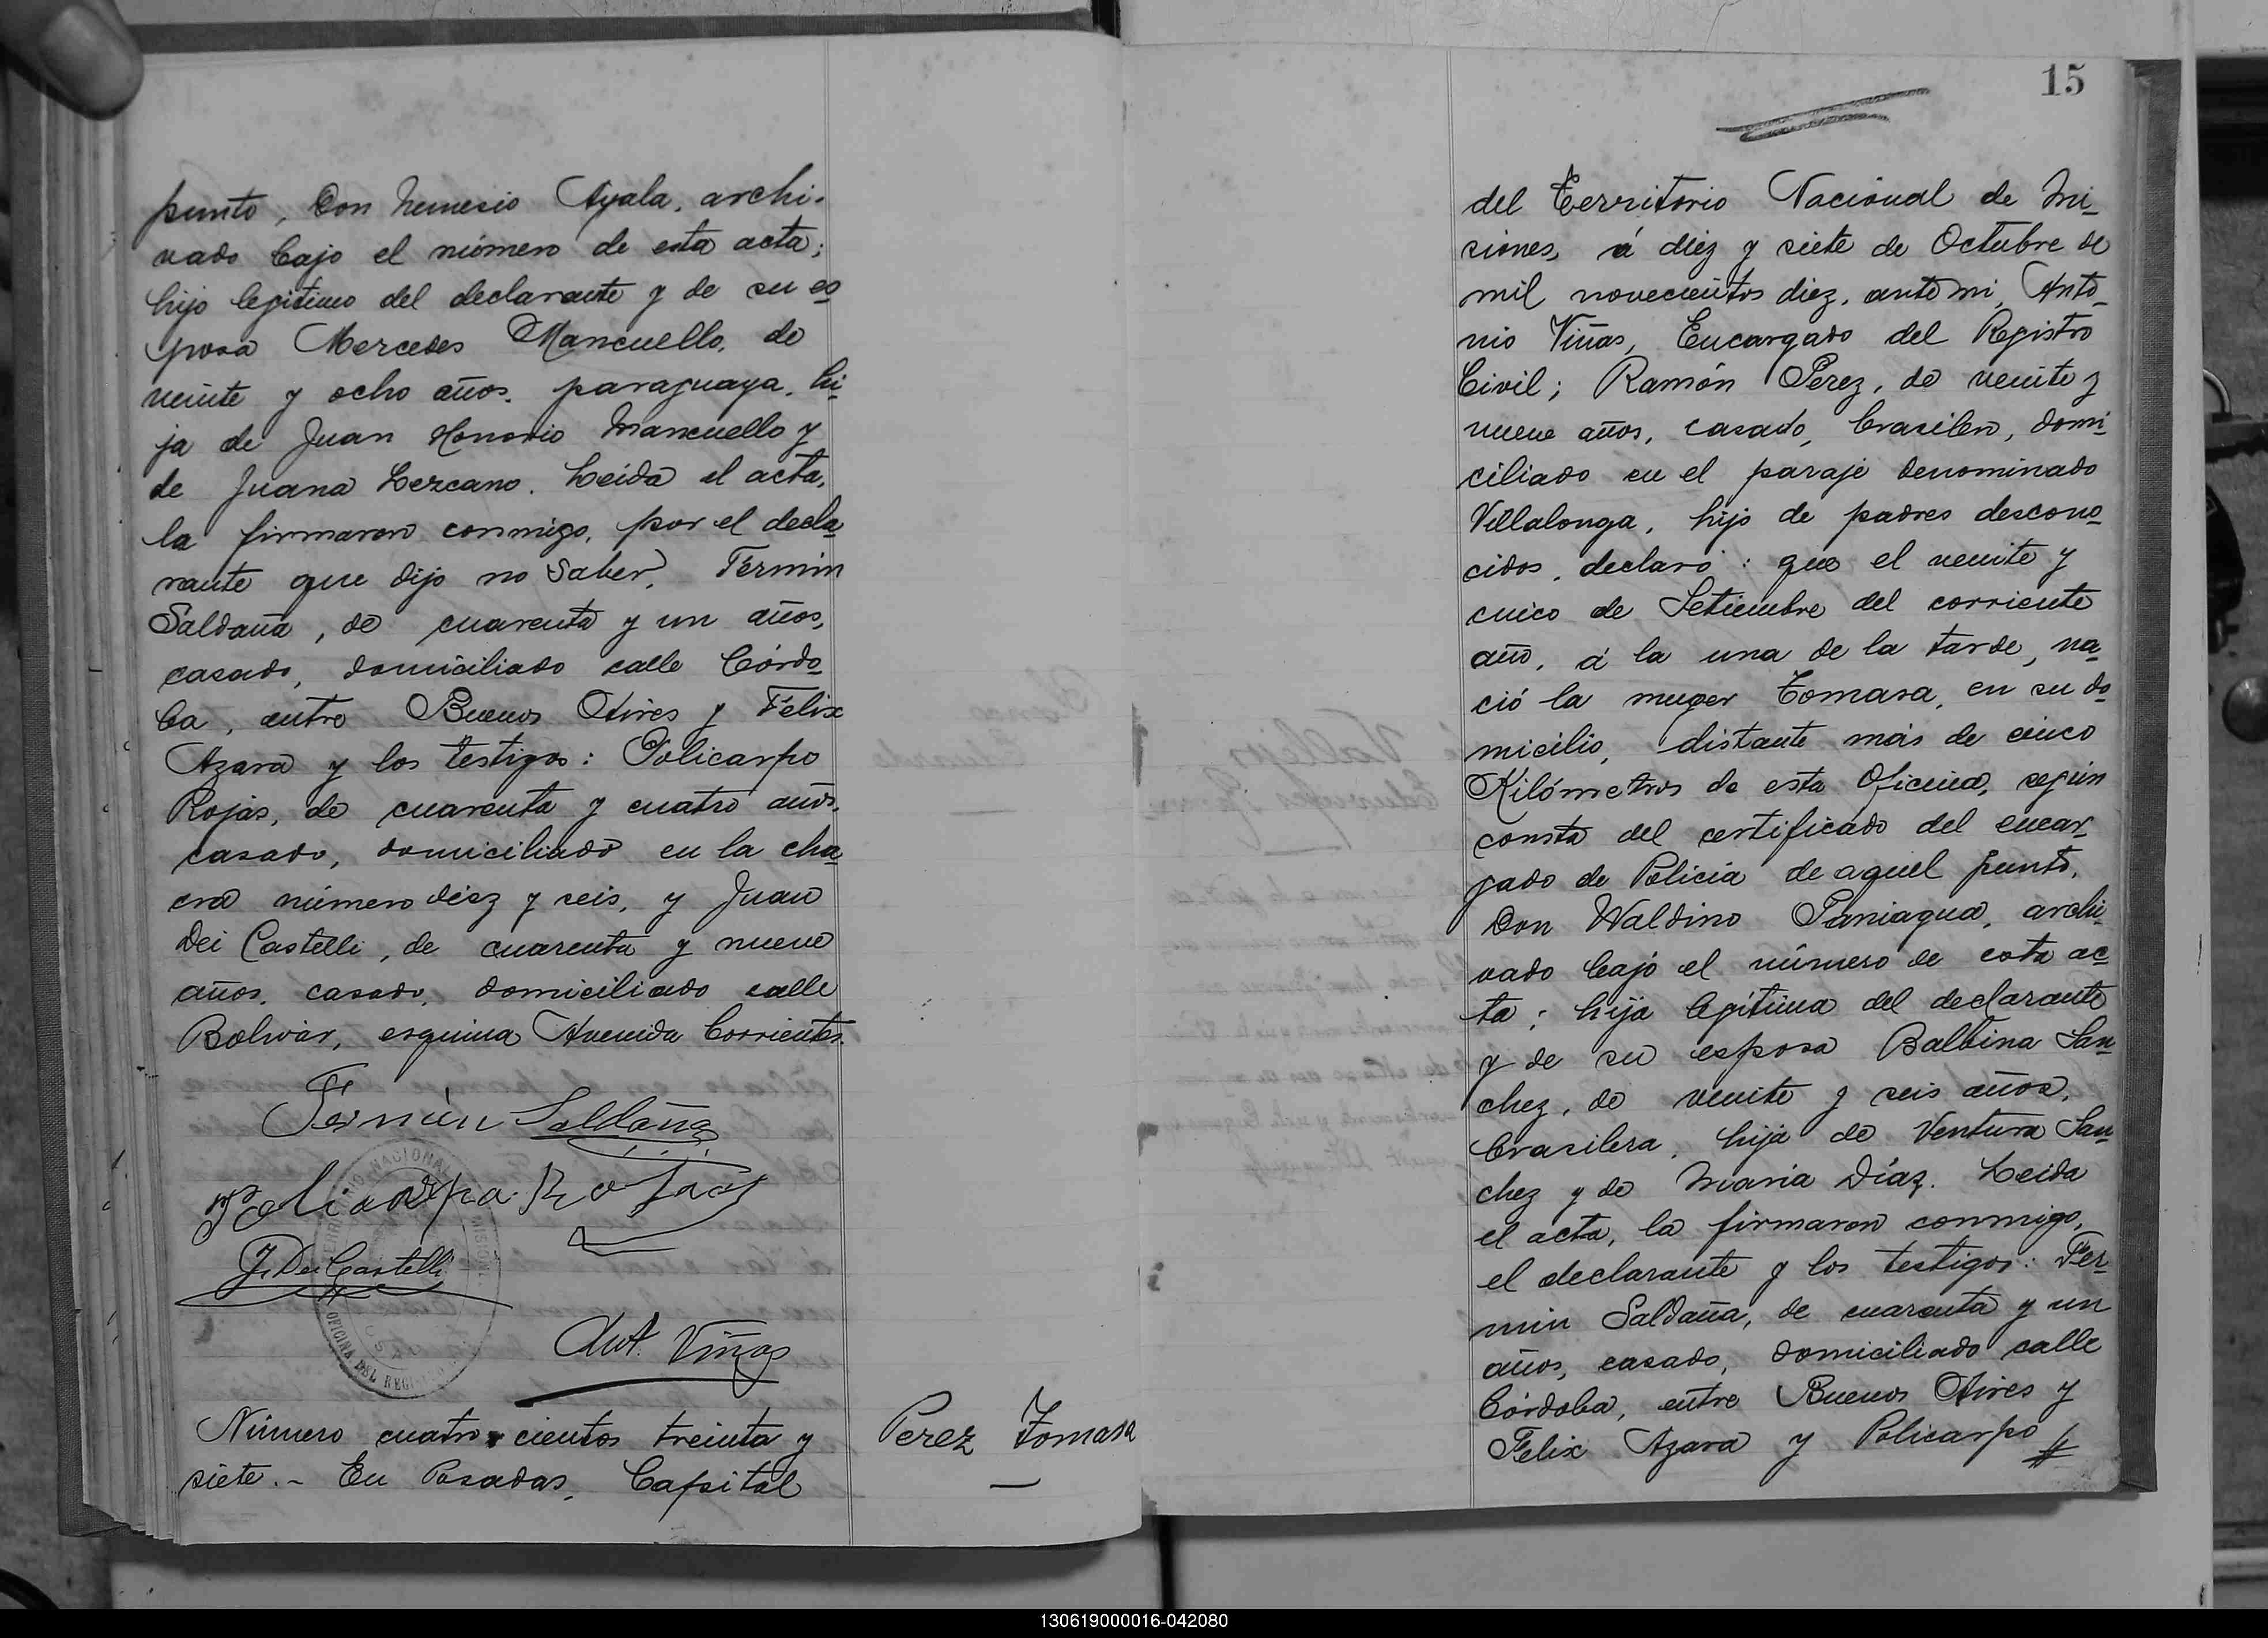 punto, Don Nemesio Ayala, archi-
vado bajo el número de esta acta;
hijo legítimo del declarante y de su es
posa Mercedes Mancuello, de
veinte y ocho años, paraguaya, hi-
ja de Juan Honorio Mancuello y
de Juana Lezcano. Leida el acta,
la firmaron conmigo, por el decla-
rante que dijo no saber, Fermin
Saldaña, de cuarenta y un años,
casado, domiciliado calle Córdo-
ba, entre Buenos Aires y Felix
Azara y los testigos: Policarpo
Rojas, de cuarenta y cuatro años,
casado, domiciliado en la cha-
cra número diez y seis, y Juan
Dei Castelli, de cuarenta y nueve
años, casado, domiciliado calle
Bolivar, esquina Avenida Corrientes.
Fermin Saldaña
Policarpa Rojas
J. Dei Castelli
Ant. Viñas
OFICINA DEL REGISTRO
Número cuatrocientos treinta y
siete.- En Posadas, Capital
Perez Tomasa
15
del Territorio Nacional de Mi-
siones, á diez y siete de Octubre de
mil novecientos diez, ante mi, Anto-
nio Viñas, Encargado del Registro
Civil; Ramón Perez, de veinte y
nueve años, casado, brasilero, domi-
ciliado en el paraje denominado
Villalonga, hijo de padres descono-
cidos, declaró: que el veinte y
cinco de Setiembre del corriente
año, á la una de la tarde, na-
ció la muger Tomasa, en su do-
micilio, distante más de cinco
Kilómetros de esta Oficina, según
consta del certificado del encar-
gado de Policia de aquel punto,
Don Waldino Paniagua, archi-
vado bajo el número de esta ac-
ta; hija legítima del declarante
y de su esposa Balbina San-
chez, de veinte y seis años,
brasilera, hija de Ventura San-
chez y de Maria Díaz. Leida
el acta, la firmaron conmigo,
el declarante y los testigos: Fer-
min Saldaña, de cuarenta y un
años, casado, domiciliado calle
Córdoba, entre Buenos Aires y
Felix Azara y Policarpo
130619000016-042080